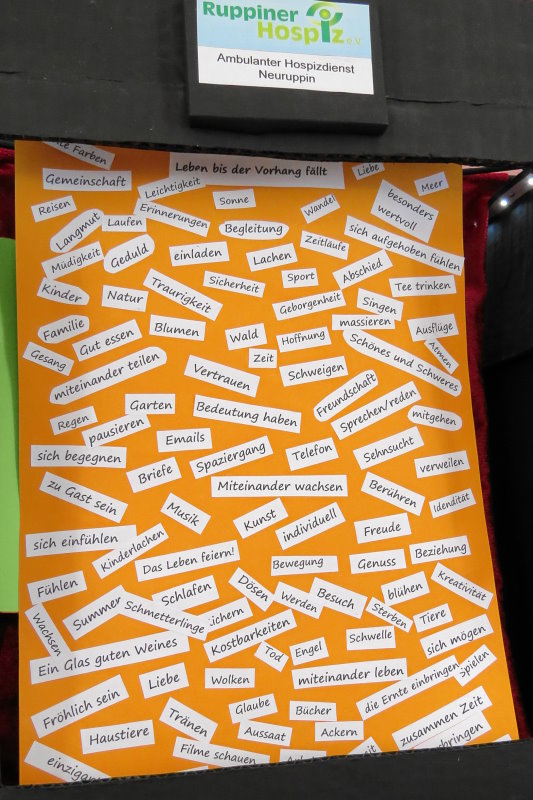 Ruppiner
Hospiz e.V.
Ambulanter Hospizdienst
Neuruppin
Farben
Leben bis der Vorhang fällt
Liebe
Gemeinschaft
Leichtigkeit
Meer
Reisen
Sonne
Wandel
besonders
wertvoll
Langmut
Laufen
Erinnerungen
Begleitung
sich aufgehoben fühlen
Müdigkeit
Geduld
einladen
Lachen
Zeitläufe
Kinder
Natur
Traurigkeit
Sicherheit
Sport
Abschied
Tee trinken
Geborgenheit
Singen
Familie
Gut essen
Blumen
Wald
Hoffnung
massieren
Ausflüge
Gesang
Zeit
Schönes und Schweres
Atmen
miteinander teilen
Vertrauen
Schweigen
Freundschaft
Regen
Garten
pausieren
Bedeutung haben
Sprechen/reden
mitgehen
sich begegnen
Emails
Briefe
Spaziergang
Telefon
Sehnsucht
verweilen
zu Gast sein
Miteinander wachsen
Berühren
Idendität
Musik
Kunst
individuell
Freude
sich einfühlen
Kinderlachen
Das Leben feiern!
Bewegung
Genuss
Beziehung
Fühlen
Schlafen
Dösen
Werden
Besuch
blühen
Kreativität
Wachsen
Summer
Schmetterlinge
ichern
Sterben
Tiere
Kostbarkeiten
Schwelle
sich mögen
Ein Glas guten Weines
Tod
Engel
Spielen
Liebe
Wolken
miteinander leben
die Ernte einbringen
Fröhlich sein
Glaube
Bücher
Tränen
Aussaat
Ackern
zusammen Zeit
Haustiere
Filme schauen